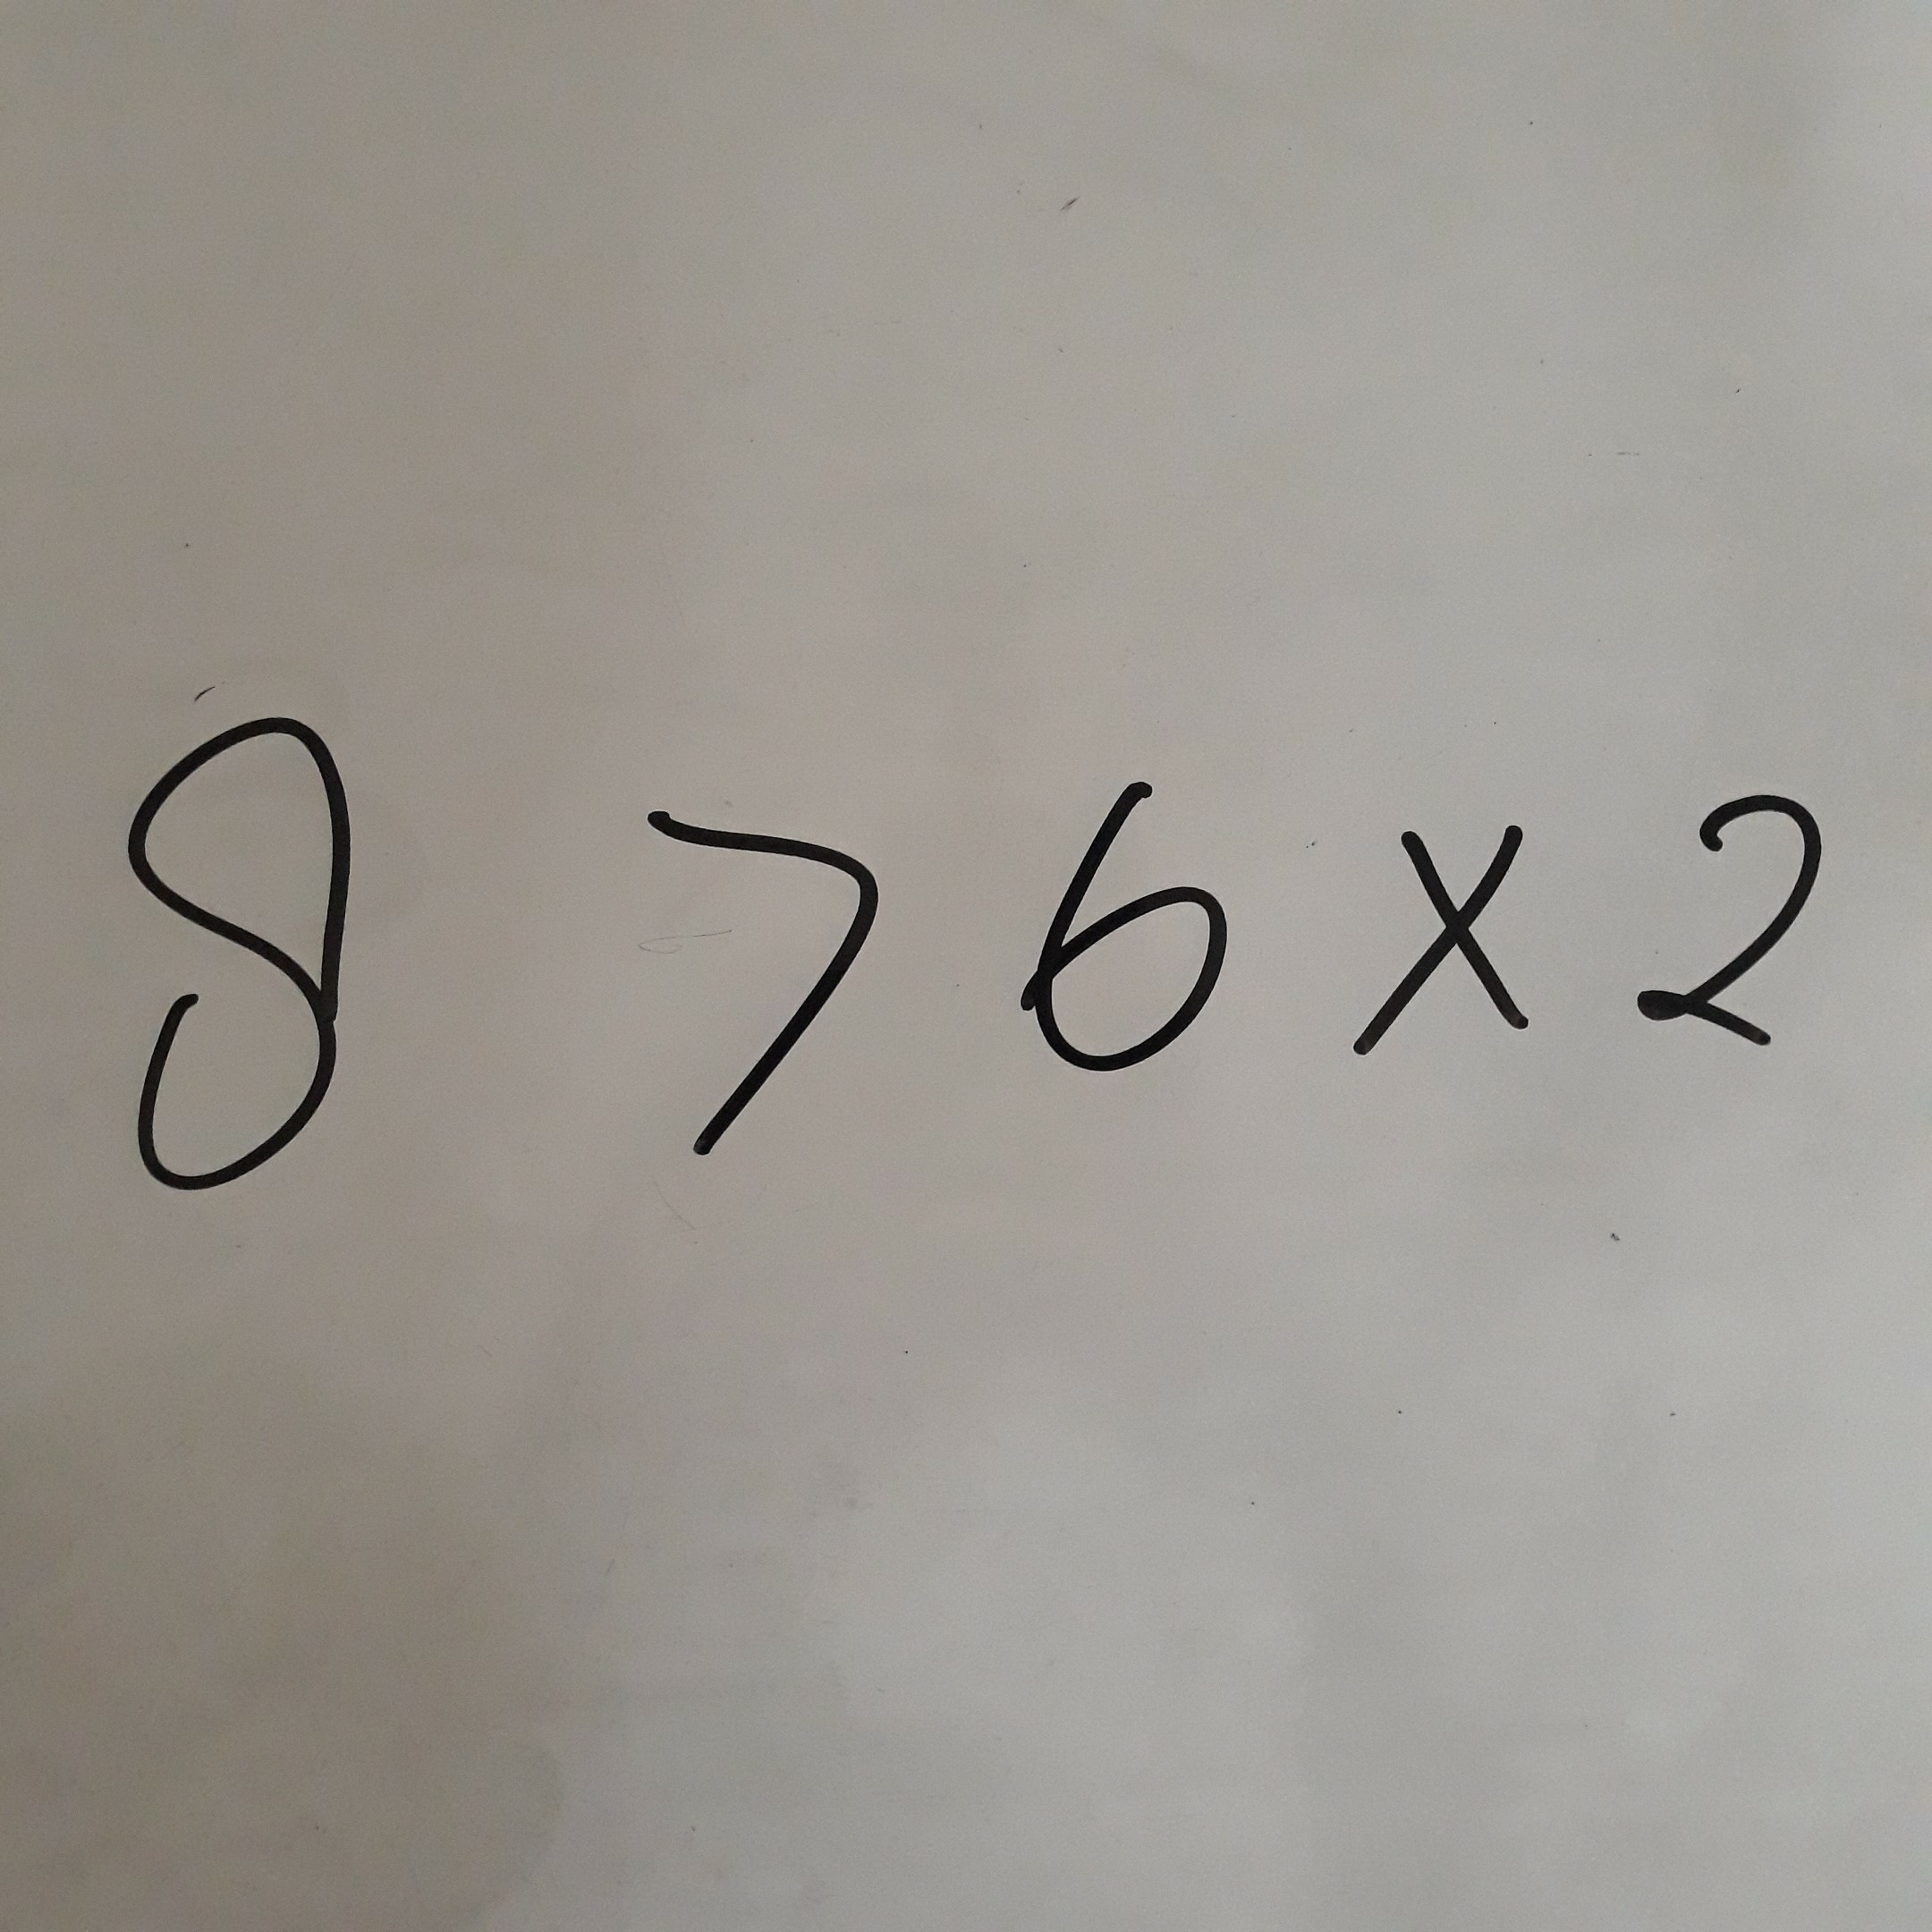 8 7 6 x 2